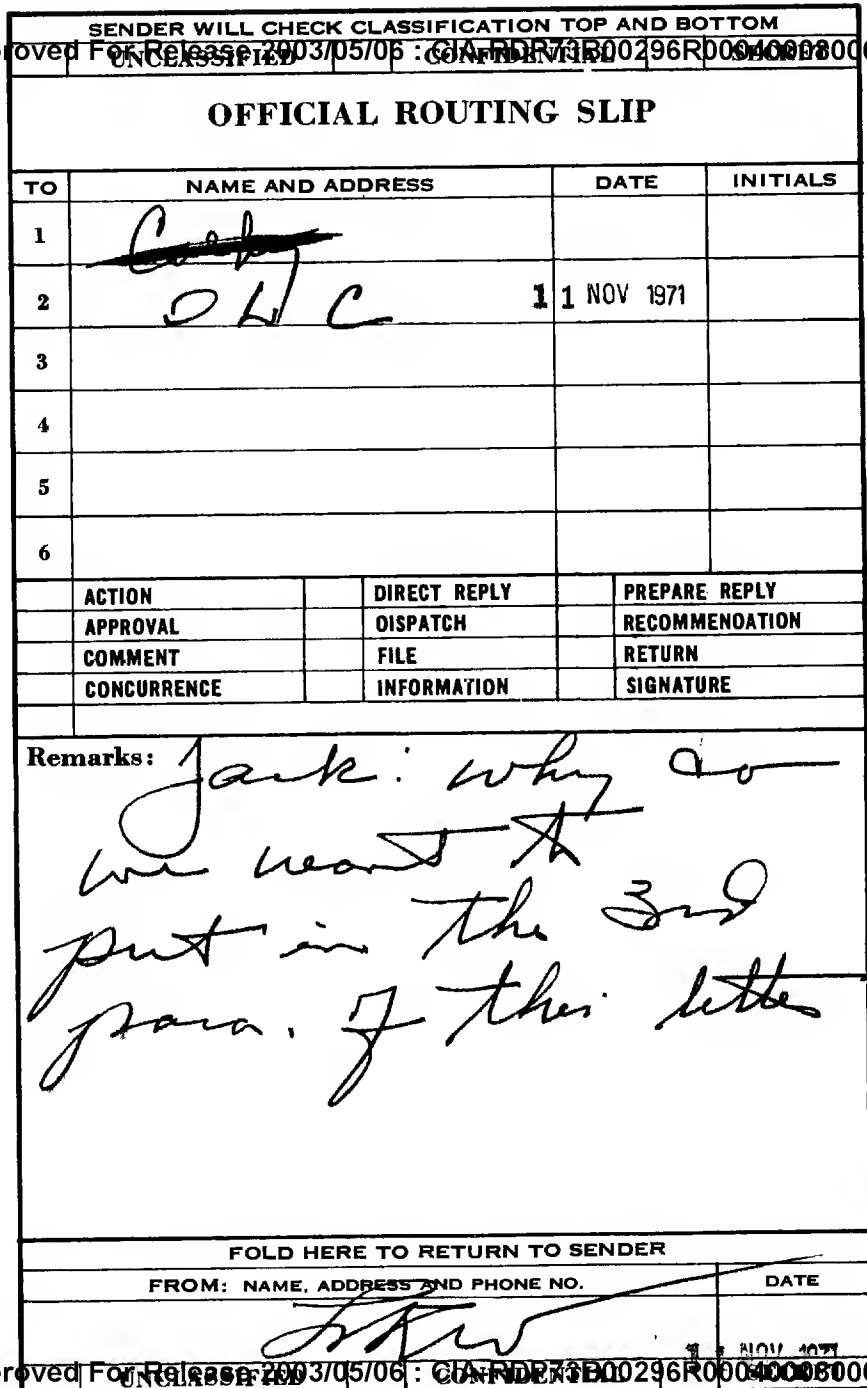 SENDER WILL CHECK CLASSIFICATION TOP AND BOTTOM
UNCLASSIFIED CONFIDENTIAL SECRET
roved For Release 2003/05/06 : CIA-RDP73B00296R0004000800
OFFICIAL ROUTING SLIP
TO NAME AND ADDRESS DATE INITIALS
1
2 OLC 11 NOV 1971
3
4
5
6
ACTION DIRECT REPLY PREPARE REPLY
APPROVAL DISPATCH RECOMMENDATION
COMMENT FILE RETURN
CONCURRENCE INFORMATION SIGNATURE
Remarks: Jack: why do
we want to
put in the 3rd
para. of this letter
FOLD HERE TO RETURN TO SENDER
FROM: NAME, ADDRESS AND PHONE NO. DATE
NOV 1971
roved For Release 2003/05/06 : CIA-RDP73B00296R0004000800
UNCLASSIFIED CONFIDENTIAL SECRET